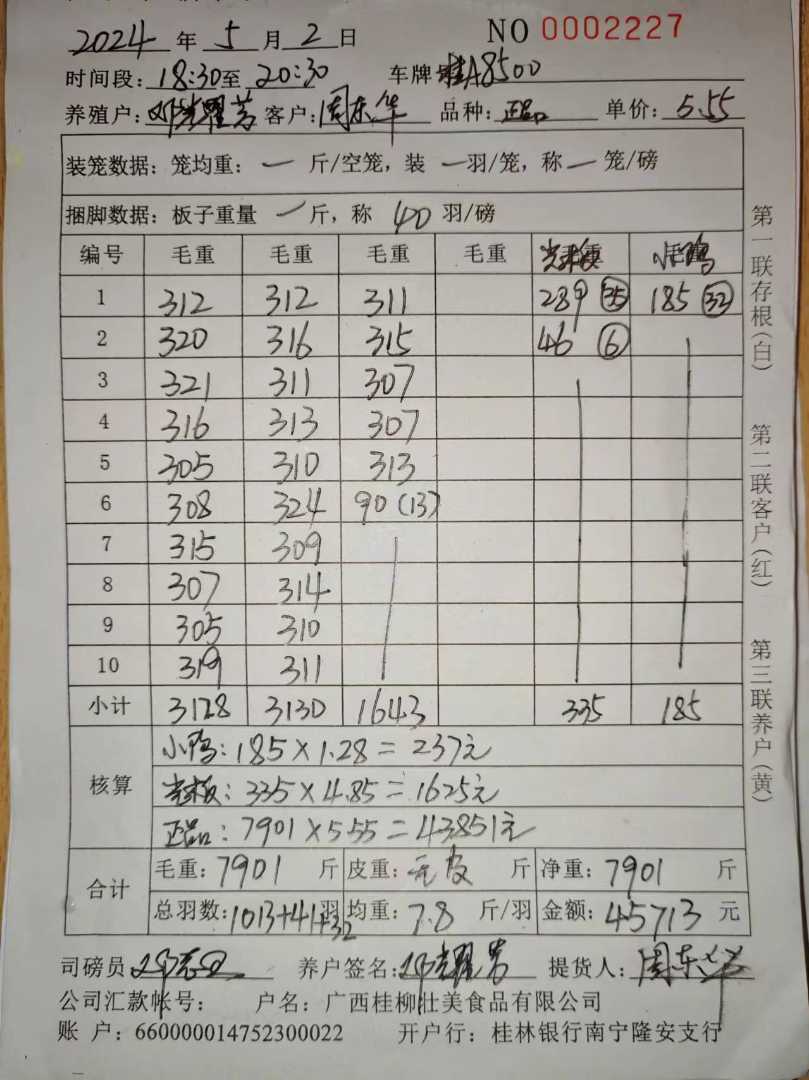 2024 年 5 月 2 日 NO 0002227
时间段: 18:30至 20:30 车牌 桂A8500
养殖户: 邓耀芳 客户: 周东华 品种: 正品 单价: 5.55
装笼数据: 笼均重: 一 斤/空笼, 装 一 羽/笼, 称 一 笼/磅
捆脚数据: 板子重量 一 斤, 称 40 羽/磅
编号 毛重 毛重 毛重 毛重 光板 小鸭
1 312 312 311 289 (35) 185 (32)
2 320 316 315 46 (6)
3 321 311 307
4 316 313 307
5 305 310 313
6 308 324 90 (13)
7 315 309
8 307 314
9 305 310
10 319 311
小计 3128 3130 1643 335 185
核算
小鸭: 185 × 1.28 = 237元
光板: 335 × 4.85 = 1625元
正品: 7901 × 5.55 = 43851元
合计
毛重: 7901 斤 皮重: 无皮 斤 净重: 7901 斤
总羽数: 1013+41+32 羽 均重: 7.8 斤/羽 金额: 45713 元
司磅员 养户签名: 提货人: 周东华
公司汇款帐号: 户名: 广西桂柳壮美食品有限公司
账 户: 660000014752300022 开户行: 桂林银行南宁隆安支行
第一联存根(白) 第二联客户(红) 第三联养户(黄)